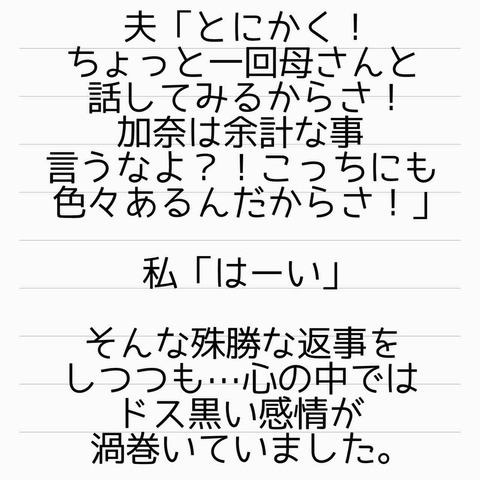 夫「とにかく！
ちょっと一回母さんと
話してみるからさ！
加奈は余計な事
言うなよ？！こっちにも
色々あるんだからさ！」
私「はーい」
そんな殊勝な返事を
しつつも…心の中では
ドス黒い感情が
渦巻いていました。